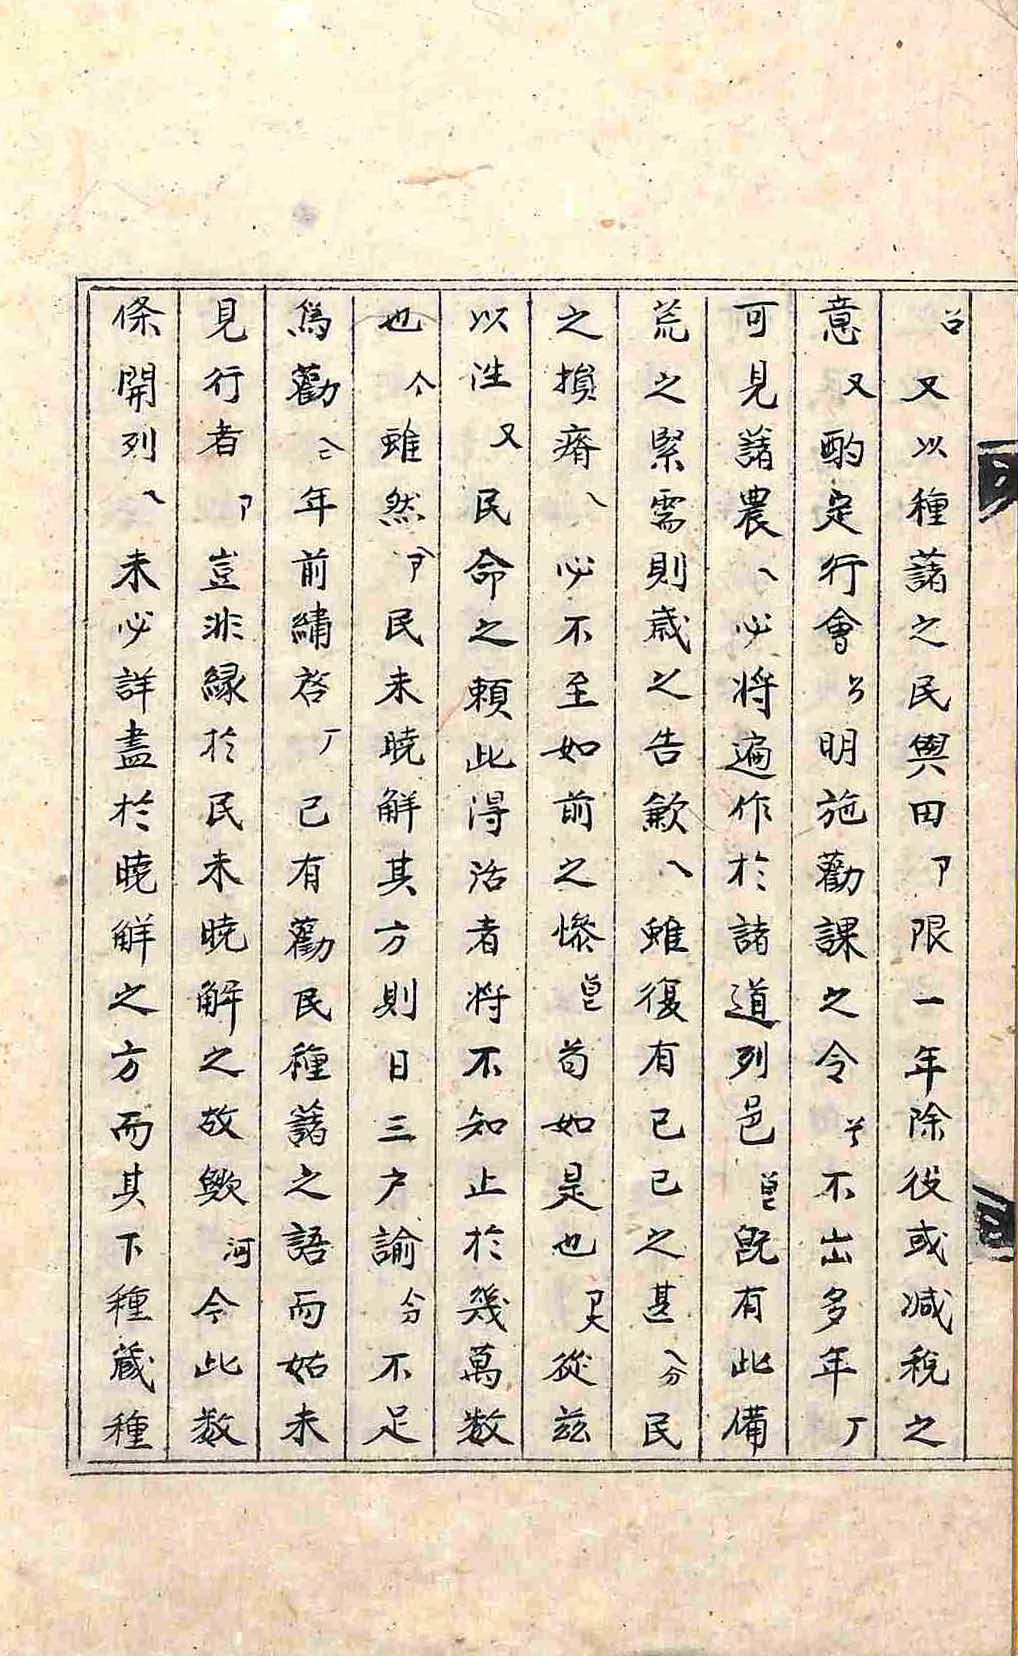 又以種藷之民與田卩限一年除役或减稅之
意又酌定行會明施勸課之令不出多年丆
可見藷農乀必將遍作於諸道列邑旣有此備
荒之緊需則歲之告歉乀雖復有己巳之甚乀分民
之損瘠乀必不至如前之慘苟如是也卩大從玆
以徃又民命之賴此得活者將不知止於幾萬数
也今雖然民未曉解其方則日三戶諭分不足
爲勸年前繡啓丆已有勸民種藷之語而姑未
見行者卩豈非緣於民未曉解之故歟河今此数
條開列乀未必詳盡於曉解之方而其下種藏種